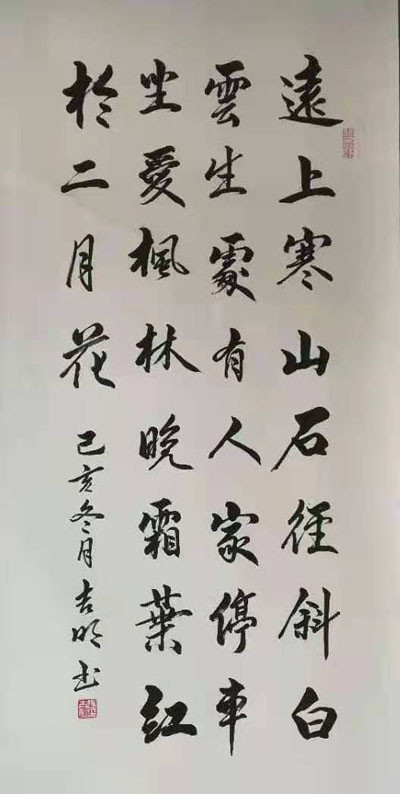 遠上寒山石徑斜白
雲生處有人家停車
坐愛楓林晚霜葉紅
於二月花
己亥冬月吉明書